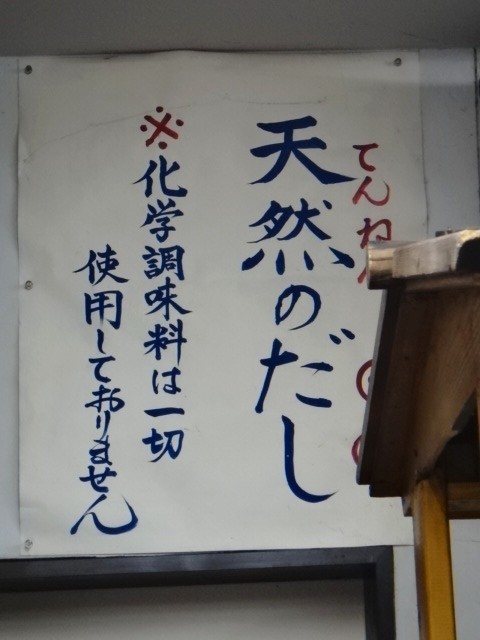 てんねん
天然のだし
※化学調味料は一切
使用しておりません